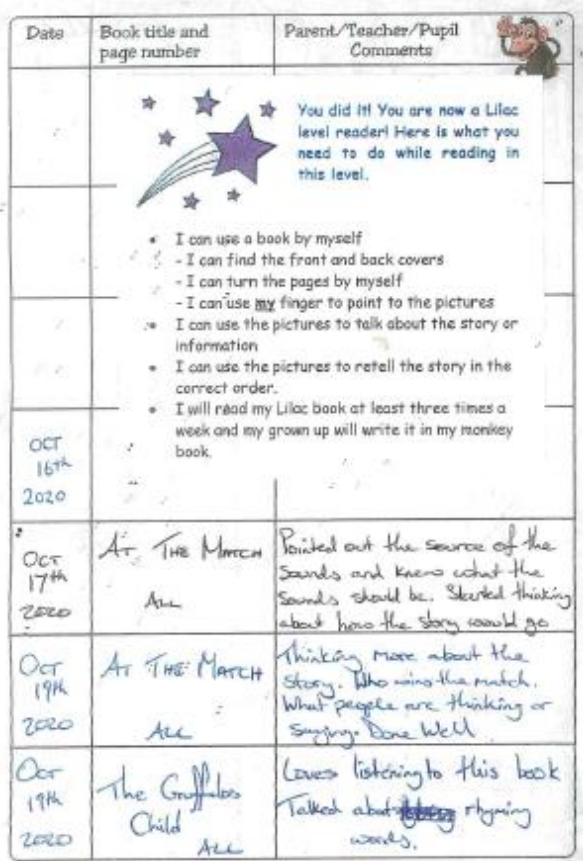 Date
Book title and
page number
Parent/Teacher/Pupil
Comments
You did it! You are now a Lilac
level reader! Here is what you
need to do while reading in
this level.
• I can use a book by myself
- I can find the front and back covers
- I can turn the pages by myself
- I can use my finger to point to the pictures
• I can use the pictures to talk about the story or
information
• I can use the pictures to retell the story in the
correct order.
• I will read my Lilac book at least three times a
week and my grown up will write it in my monkey
book.
OCT
16th
2020
OCT
17th
2020
AT THE MATCH
ALL
Pointed out the source of the
Sounds and knew what the
Sounds should be. Started thinking
about how the story would go
OCT
19th
2020
AT THE MATCH
ALL
Thinking more about the
story. Who wins the match.
What people are thinking or
saying. Done Well
OCT
19th
2020
The Gruffalos
Child
ALL
Loves listening to this book
Talked about rhyming
words.